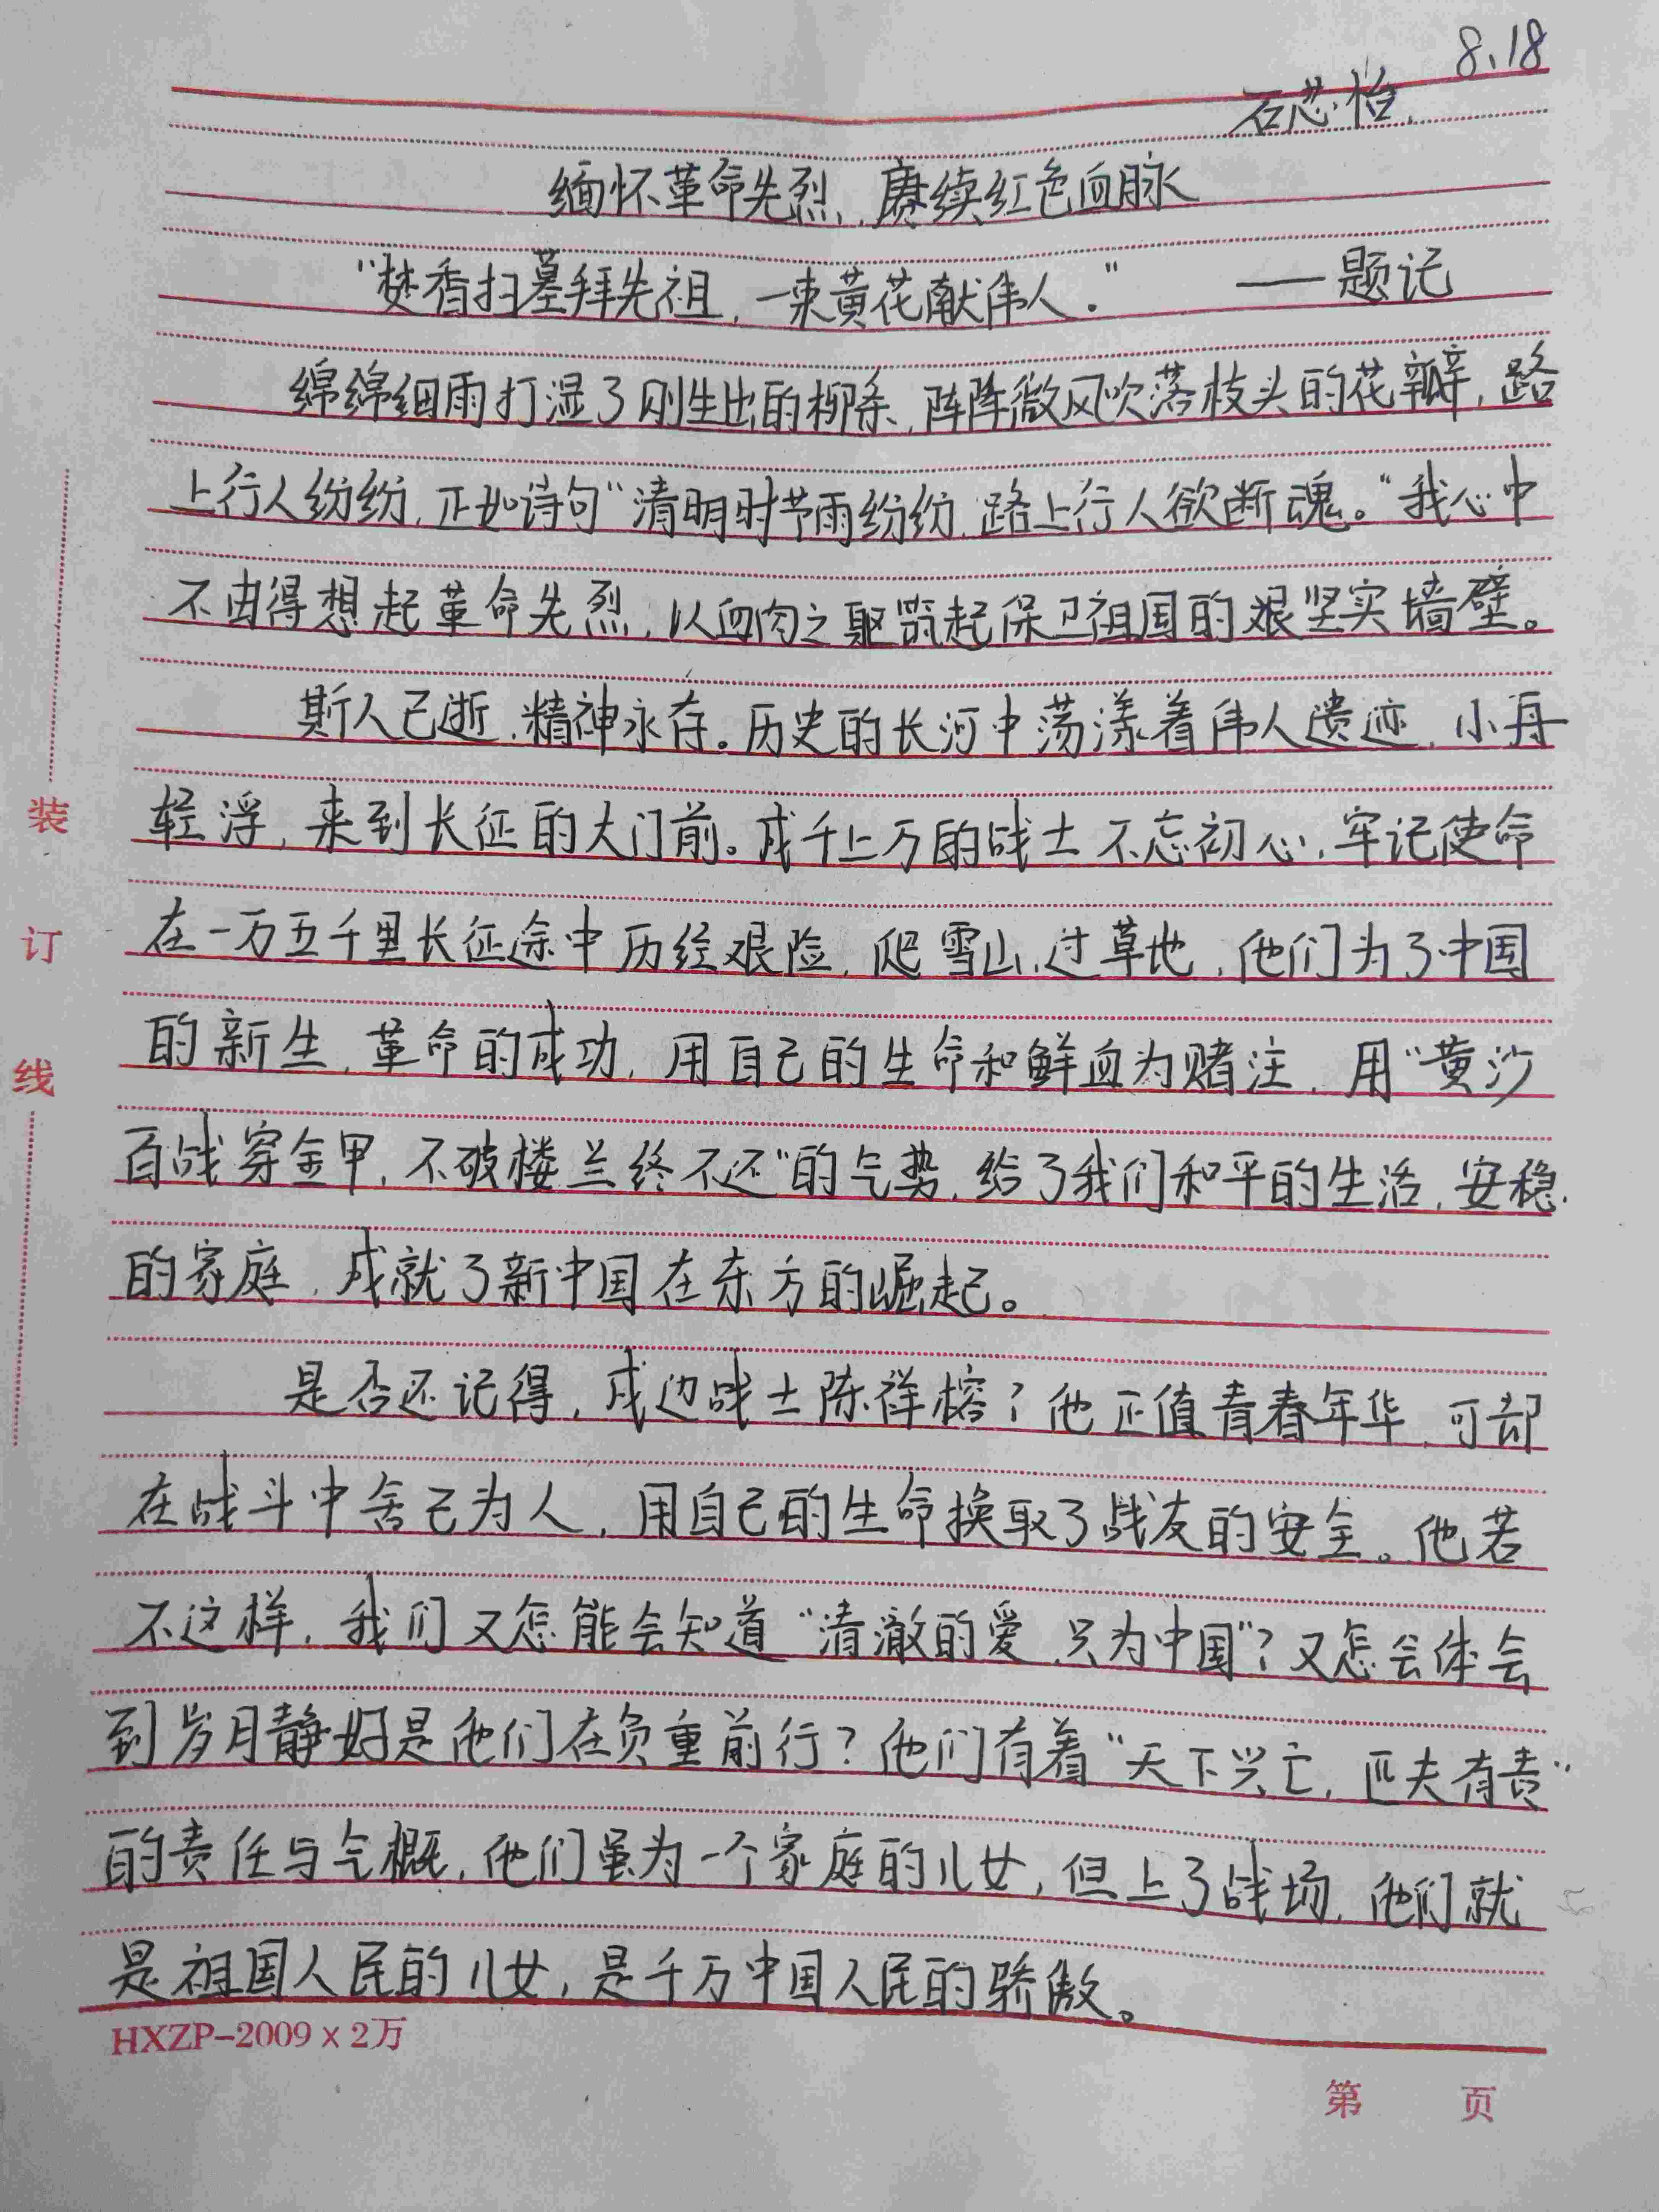 8.18
石芯怡
缅怀革命先烈,赓续红色血脉
“焚香扫墓拜先祖,一束黄花献伟人.” ——题记
绵绵细雨打湿了刚生出的柳条,阵阵微风吹落枝头的花瓣,路
上行人纷纷,正如诗句“清明时节雨纷纷,路上行人欲断魂。”我心中
不由得想起革命先烈,以血肉之躯筑起保卫祖国的艰坚实墙壁。
斯人已逝,精神永存。历史的长河中荡漾着伟人遗迹,小舟
轻浮,来到长征的大门前。成千上万的战士不忘初心,牢记使命
在一万五千里长征途中历经艰险,爬雪山,过草地,他们为了中国
的新生,革命的成功,用自己的生命和鲜血为赌注,用“黄沙
百战穿金甲,不破楼兰终不还”的气势,给了我们和平的生活,安稳
的家庭,成就了新中国在东方的崛起。
是否还记得,戍边战士陈祥榕?他正值青春年华,可却
在战斗中舍己为人,用自己的生命换取了战友的安全。他若
不这样,我们又怎能会知道“清澈的爱,只为中国”?又怎会体会
到岁月静好是他们在负重前行?他们有着“天下兴亡,匹夫有责”
的责任与气概,他们虽为一个家庭的儿女,但上了战场,他们就
是祖国人民的儿女,是千万中国人民的骄傲。
装
订
线
HXZP-2009×2万
第 页